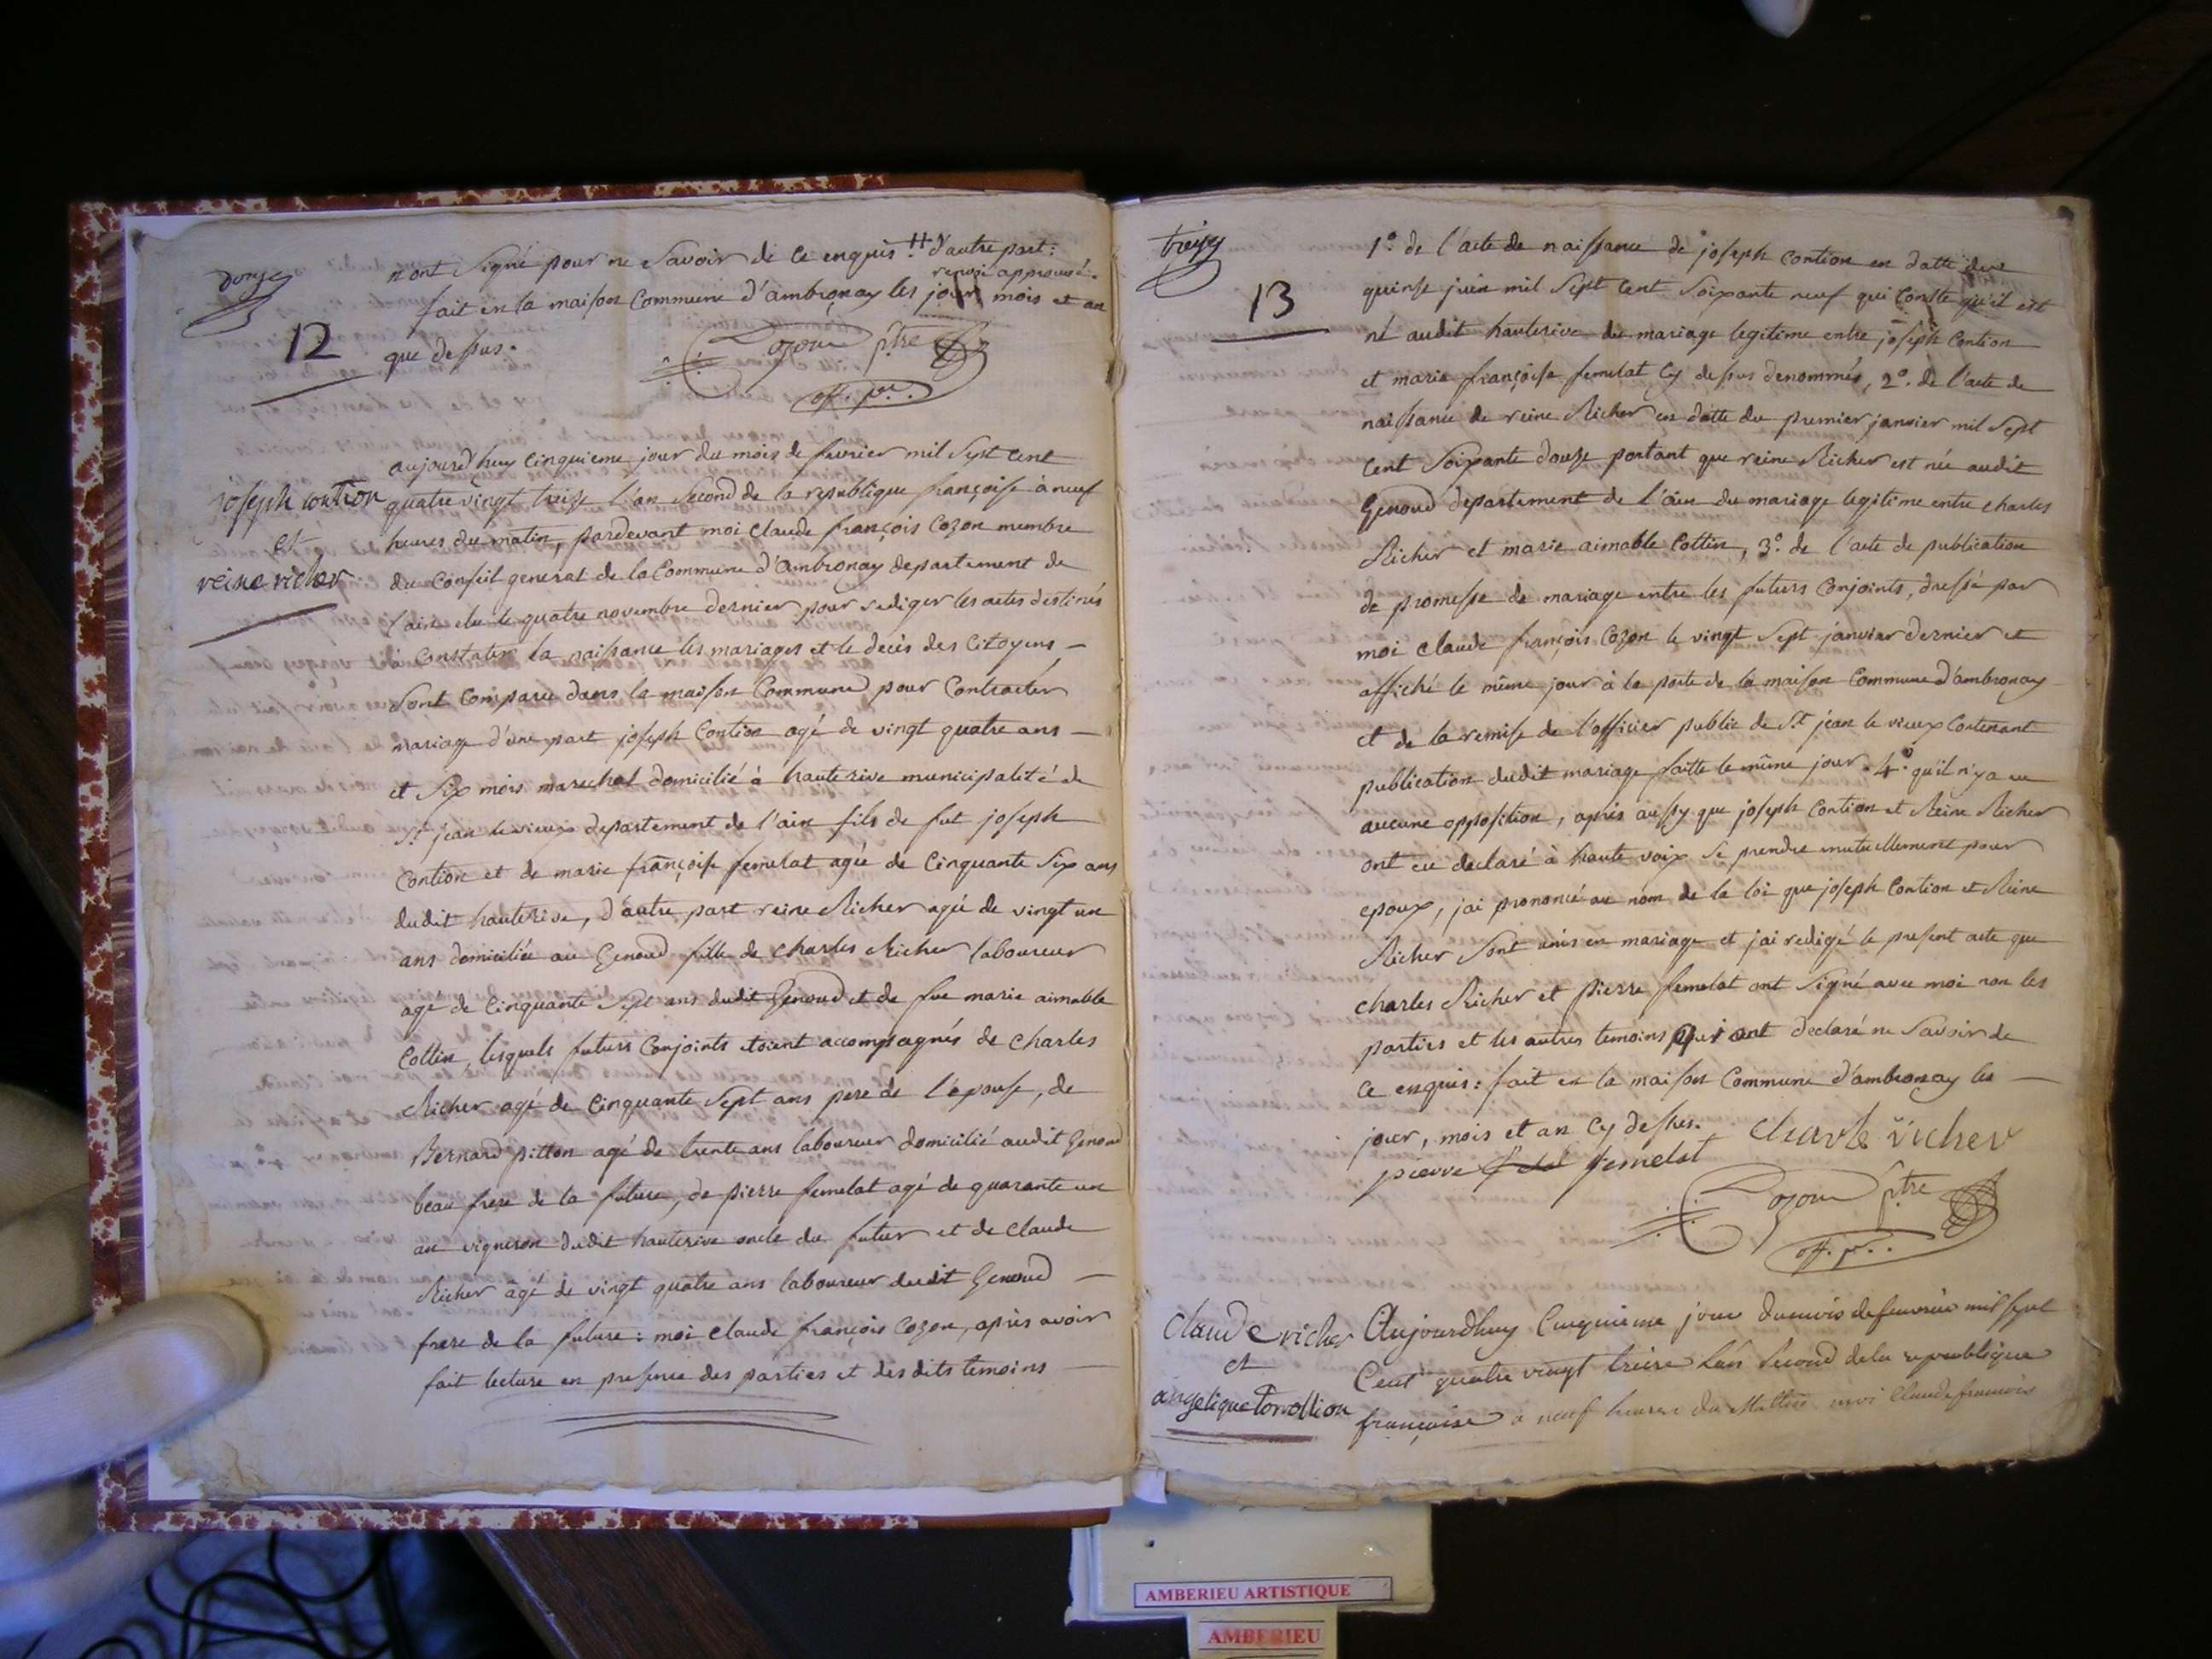 douze
12
n'ont signé pour ne savoir de ce enquis # d'autre part :
renvoi approuvé.
fait en la maison Commune d'ambronay les jour mois et an
que dessus.
Cozon ptre
off. p.
joseph contion
et
reine richer
aujourd'huy cinquieme jour du mois de fevrier mil sept cent
quatre vingt treize l'an second de la republique françoise à neuf
heures du matin, pardevant moi claude françois Cozon membre
du Conseil general de la Commune d'Ambronay departement de
l'ain elu le quatre novembre dernier pour rediger les actes destinés
à constater la naissance les mariages et le decès des Citoyens –
sont comparu dans la maison Commune pour Contracter
mariage d'une part joseph Contion agé de vingt quatre ans –
et six mois marechal domicilié à hauterive municipalité de
St. jean le vieux departement de l'ain fils de fut joseph
Contion et de marie françoise femelat agée de Cinquante Six ans
dudit hauterive, d'autre part reine Richer agée de vingt un
ans domiciliée au Genoud fille de Charles Richer laboureur
agé de Cinquante Sept ans dudit Genoud et de fue marie aimable
Cottin, lesquels futurs Conjoints etoient accompagnés de Charles
Richer agé de Cinquante Sept ans pere de l'epouse, de
Bernard pitton agé de trente ans laboureur domicilié audit Genoud
beau frere de la future, de pierre femelat agé de quarante un
an vigneron dudit hauterive oncle du futur et de Claude
Richer âgé de vingt quatre ans laboureur dudit Genoud –
frere de la future : moi Claude françois Cozon, après avoir
fait lecture en presence des parties et desdits temoins –
treize
13
1º. de l'acte de naissance de joseph Contion en datte du
quinse juin mil Sept Cent Soixante neuf qui Conste qu'il est
né audit hauterive du mariage legitime entre joseph Contion
et marie françoise femelat Cy dessus denommés, 2º. de l'acte de
naissance de reine Richer en datte du premier janvier mil Sept
Cent Soixante douze portant que reine Richer est née audit
Genoud departement de l'ain du mariage legitime entre charles
Richer et marie aimable Cottin, 3º. de l'acte de publication
de promesse de mariage entre les futurs Conjoints, dressé par
moi Claude françois Cozon le vingt Sept janvier dernier et
affiché le même jour à la porte de la maison Commune d'ambronay
et de la remise de l'officier public de St jean le vieux Contenant
publication dudit mariage faitte le même jour. 4º. qu'il n'y a eu
aucune opposition, après aussy que joseph Contion et Reine Richer
ont eu declaré à haute voix Se prendre mutuellement pour
epoux, j'ai prononcé au nom de la loi que joseph Contion et Reine
Richer Sont unis en mariage et j'ai redigé le present acte que
charles Richer et pierre femelat ont Signé avec moi non les
parties et les autres temoins qui ont declaré ne Savoir de
Ce enquis : fait en la maison Commune d'ambronay les –
jour, mois et an Cy dessus.
charle richer
pierre femelat
Cozon ptre
off. p.
Claude richer
et
angelique Torrollion
Aujourdhuy Cinquieme jour dumois defeuvrier mil sept
Cent quatre vingt treize L'an Second dela republique
françoise a neuf heures du Mattin moi Claude francois
AMBERIEU ARTISTIQUE
AMBERIEU